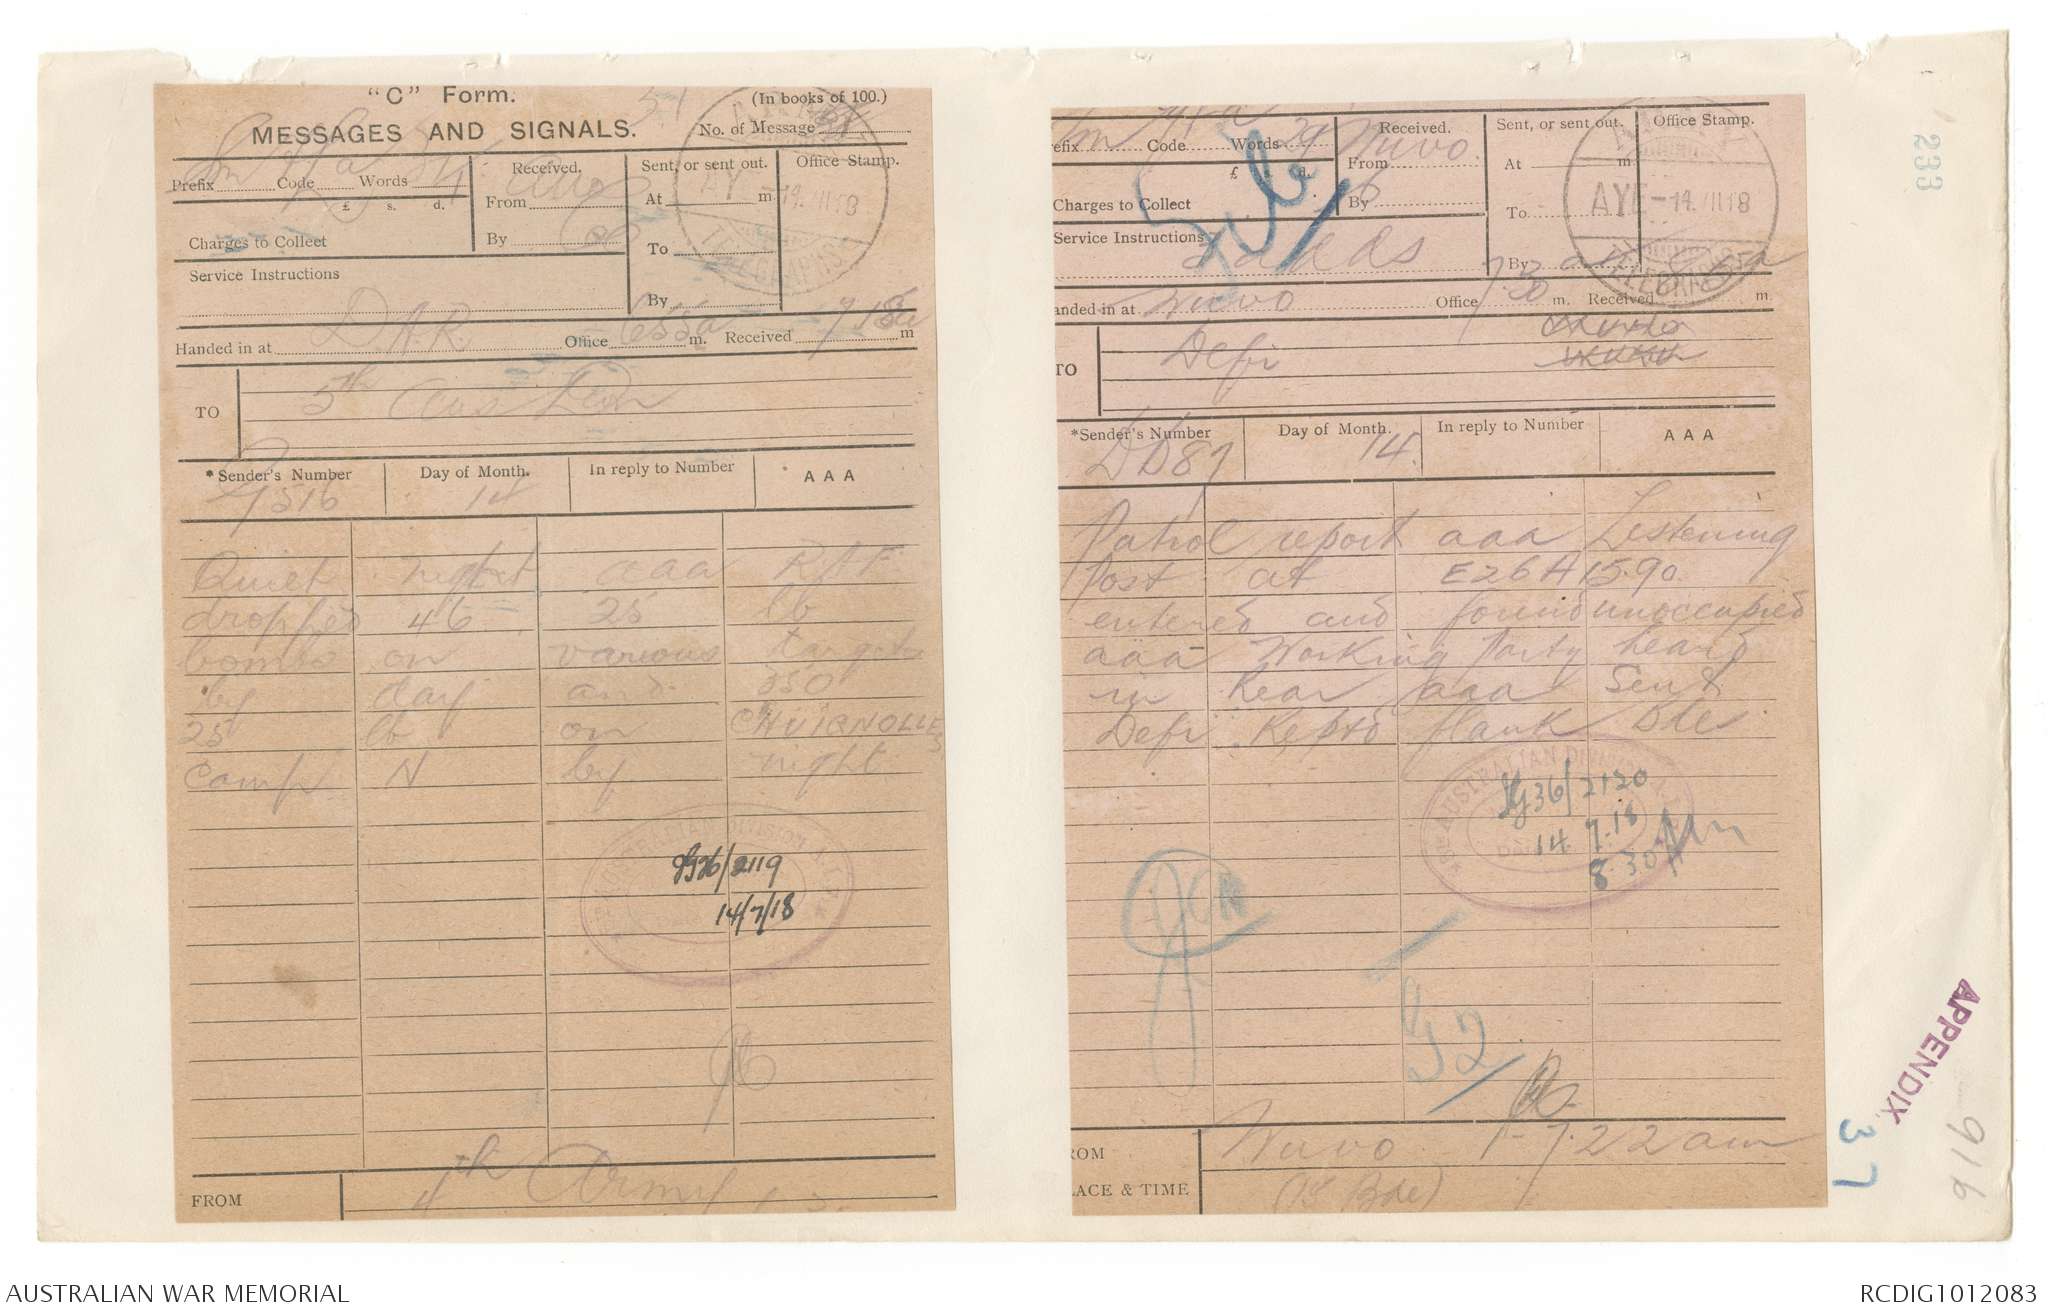 "C" Form.
(In books of 100.)
MESSAGES AND SIGNALS.
No. of Message
Prefix Sm Code Words 34
£ s. d.
Charges to Collect
Service Instructions
Received.
From
By
Sent, or sent out.
At m
To
By
Office Stamp.
AYE -14.VII.18
TELEGRAPHS
D.A.R.
Handed in at Office m. Received m
TO
5th Aus Div
*Sender's Number
G516
Day of Month.
14
In reply to Number
AAA
Quiet night aaa RAF
dropped 46 25 lb
bombs on various targets
by day and 350
25 lb on CHUIGNOLLES
Camp N by night
AUSTRALIAN DIVISION
IG36/2119
14/7/18
FROM
4th Army
efix Sm Code Words 29
£ s. d.
Charges to Collect
Service Instructions
Received.
From Wuvo
By
Sent, or sent out.
At m
To
By
Office Stamp.
AYE -14.VII.18
TELEGRAPHS
anded in at Wuvo Office 7.30 m. Received m.
TO
Defi
*Sender's Number
DD87
Day of Month.
14
In reply to Number
AAA
Patrol report aaa Listening
Post at E26A15.90
entered and found unoccupied
aaa Working Party heard
in Rear aaa Sent
Defi Reptd flank Bde
AUSTRALIAN DIVISION
IG36/2120
14.7.18
8.30 Am
G2
ROM
Wuvo 7.22 am
LACE & TIME
(15 Bde)
233
APPENDIX.
37
916
AUSTRALIAN WAR MEMORIAL
RCDIG1012083